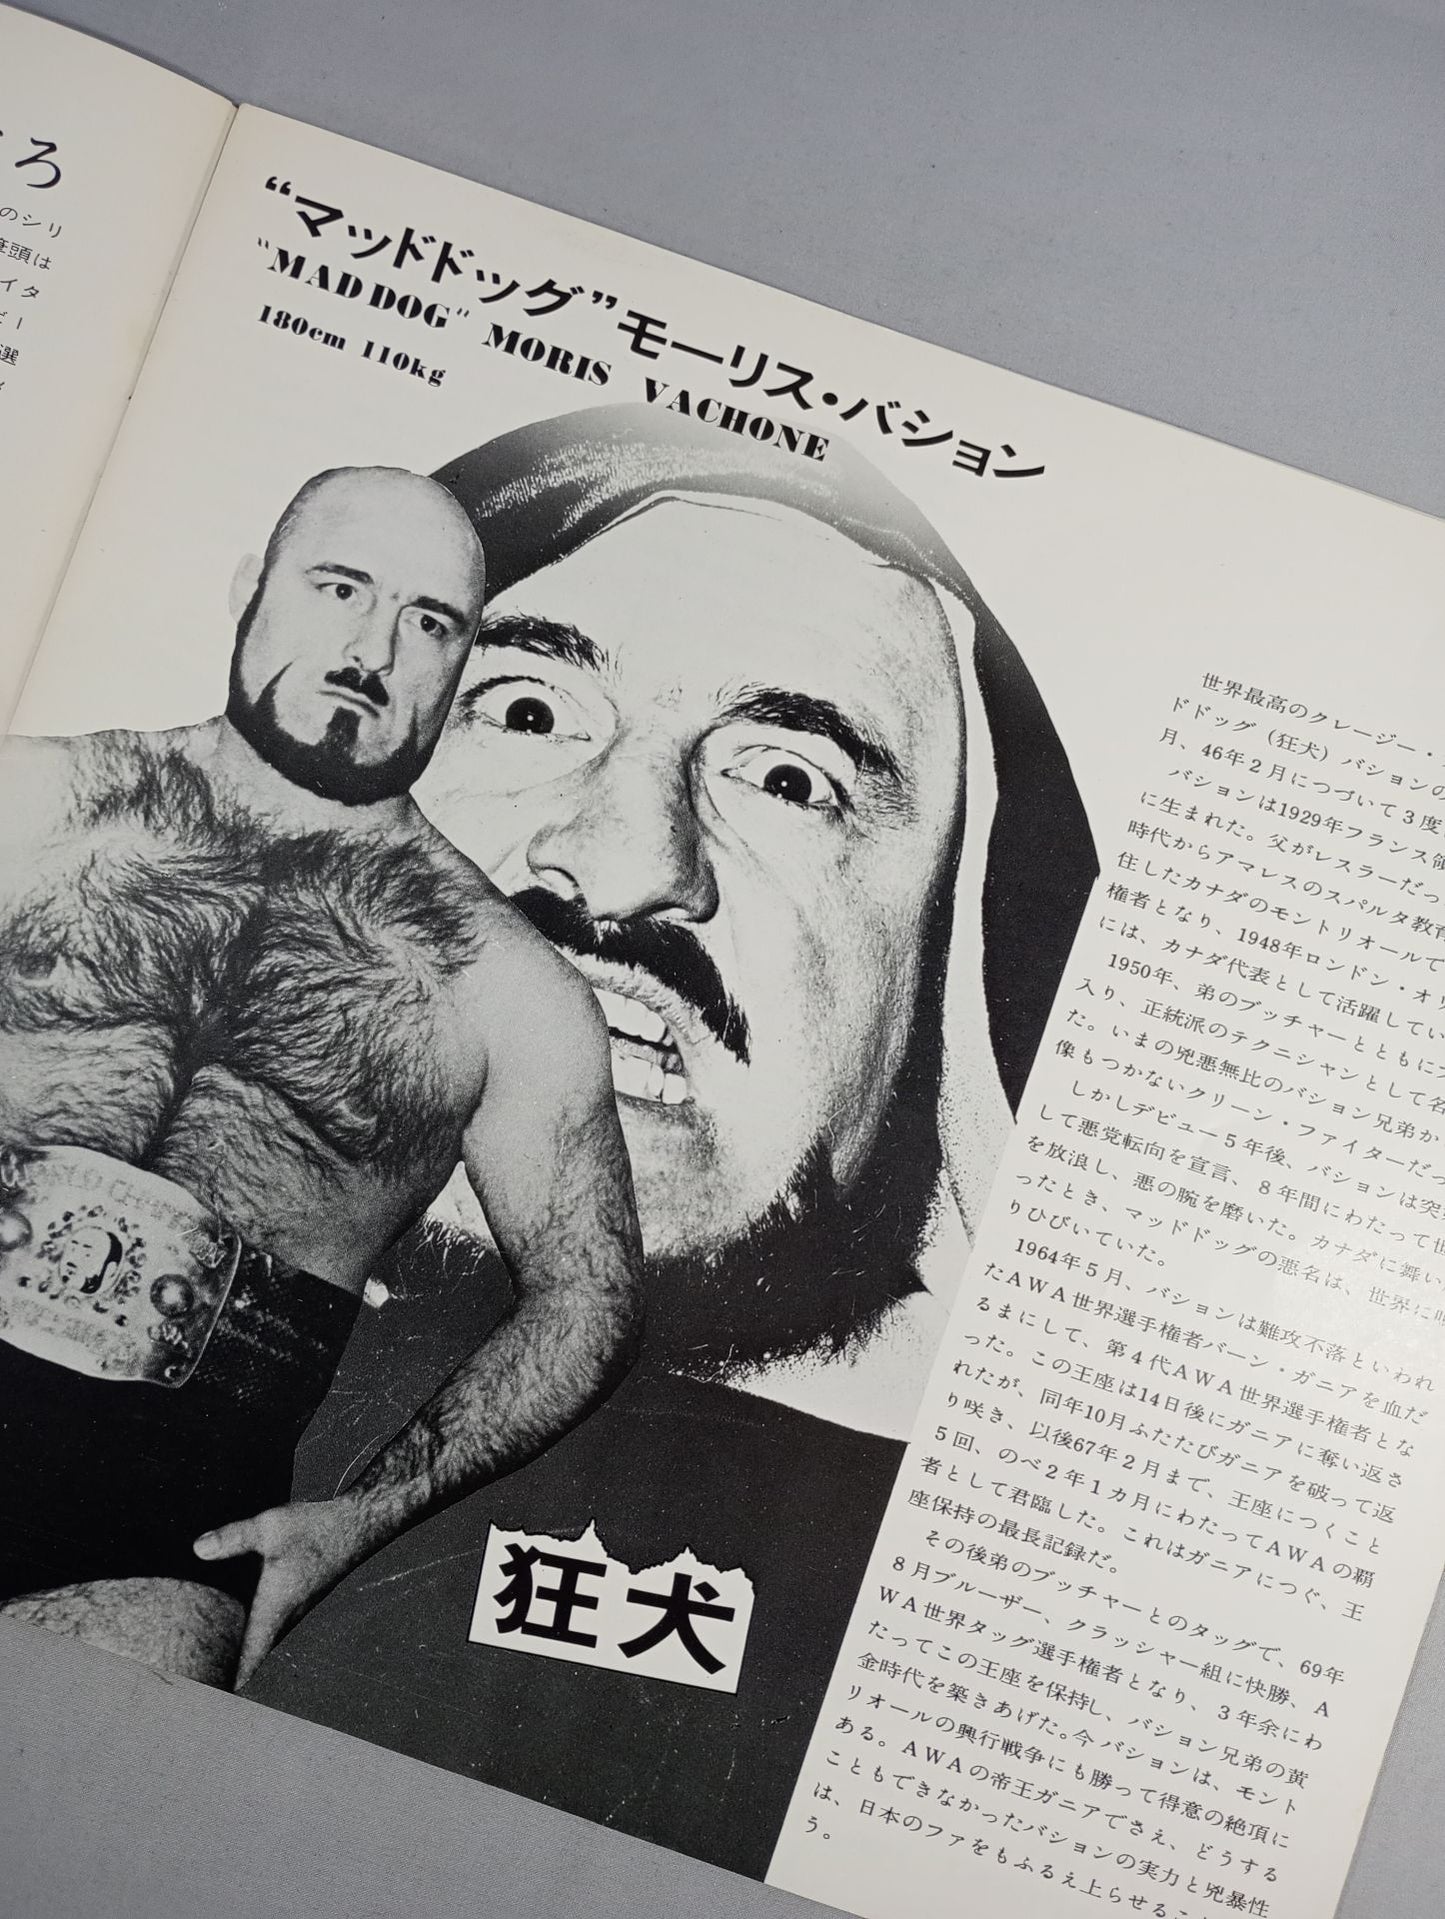 ろ
のシリ
筆頭は
イタ
ビー
選
“マッドドッグ”モーリス・バション
"MAD DOG" MORIS VACHONE
180cm 110kg
狂犬
世界最高のクレージー・
ドドッグ（狂犬）バションの
月、46年2月につづいて3度
バションは1929年フランス領
に生まれた。父がレスラーだっ
時代からアマレスのスパルタ教育
住したカナダのモントリオールで
権者となり、1948年ロンドン・オリ
には、カナダ代表として活躍してい
1950年、弟のブッチャーとともに
入り、正統派のテクニシャンとして名
た。いまの兇悪無比のバション兄弟か
像もつかないクリーン・ファイターだっ
しかしデビュー5年後、バションは突
して悪党転向を宣言、8年間にわたって世
を放浪し、悪の腕を磨いた。カナダに舞い
ったとき、マッドドッグの悪名は、世界に
りひびいていた。
1964年5月、バションは難攻不落といわれ
たAWA世界選手権者バーン・ガニアを血だ
るまにして、第4代AWA世界選手権者とな
った。この王座は14日後にガニアに奪い返さ
れたが、同年10月ふたたびガニアを破って返
り咲き、以後67年2月まで、王座につくこと
5回、のべ2年1カ月にわたってAWAの覇
者として君臨した。これはガニアにつぐ、王
座保持の最長記録だ。
その後弟のブッチャーとのタッグで、69年
8月ブルーザー、クラッシャー組に快勝、A
WA世界タッグ選手権者となり、3年余にわ
たってこの王座を保持し、バション兄弟の黄
金時代を築きあげた。今バションは、モント
リオールの興行戦争にも勝って得意の絶頂に
ある。AWAの帝王ガニアでさえ、どうする
こともできなかったバションの実力と兇暴性
は、日本のファをもふるえ上らせるこ
う。